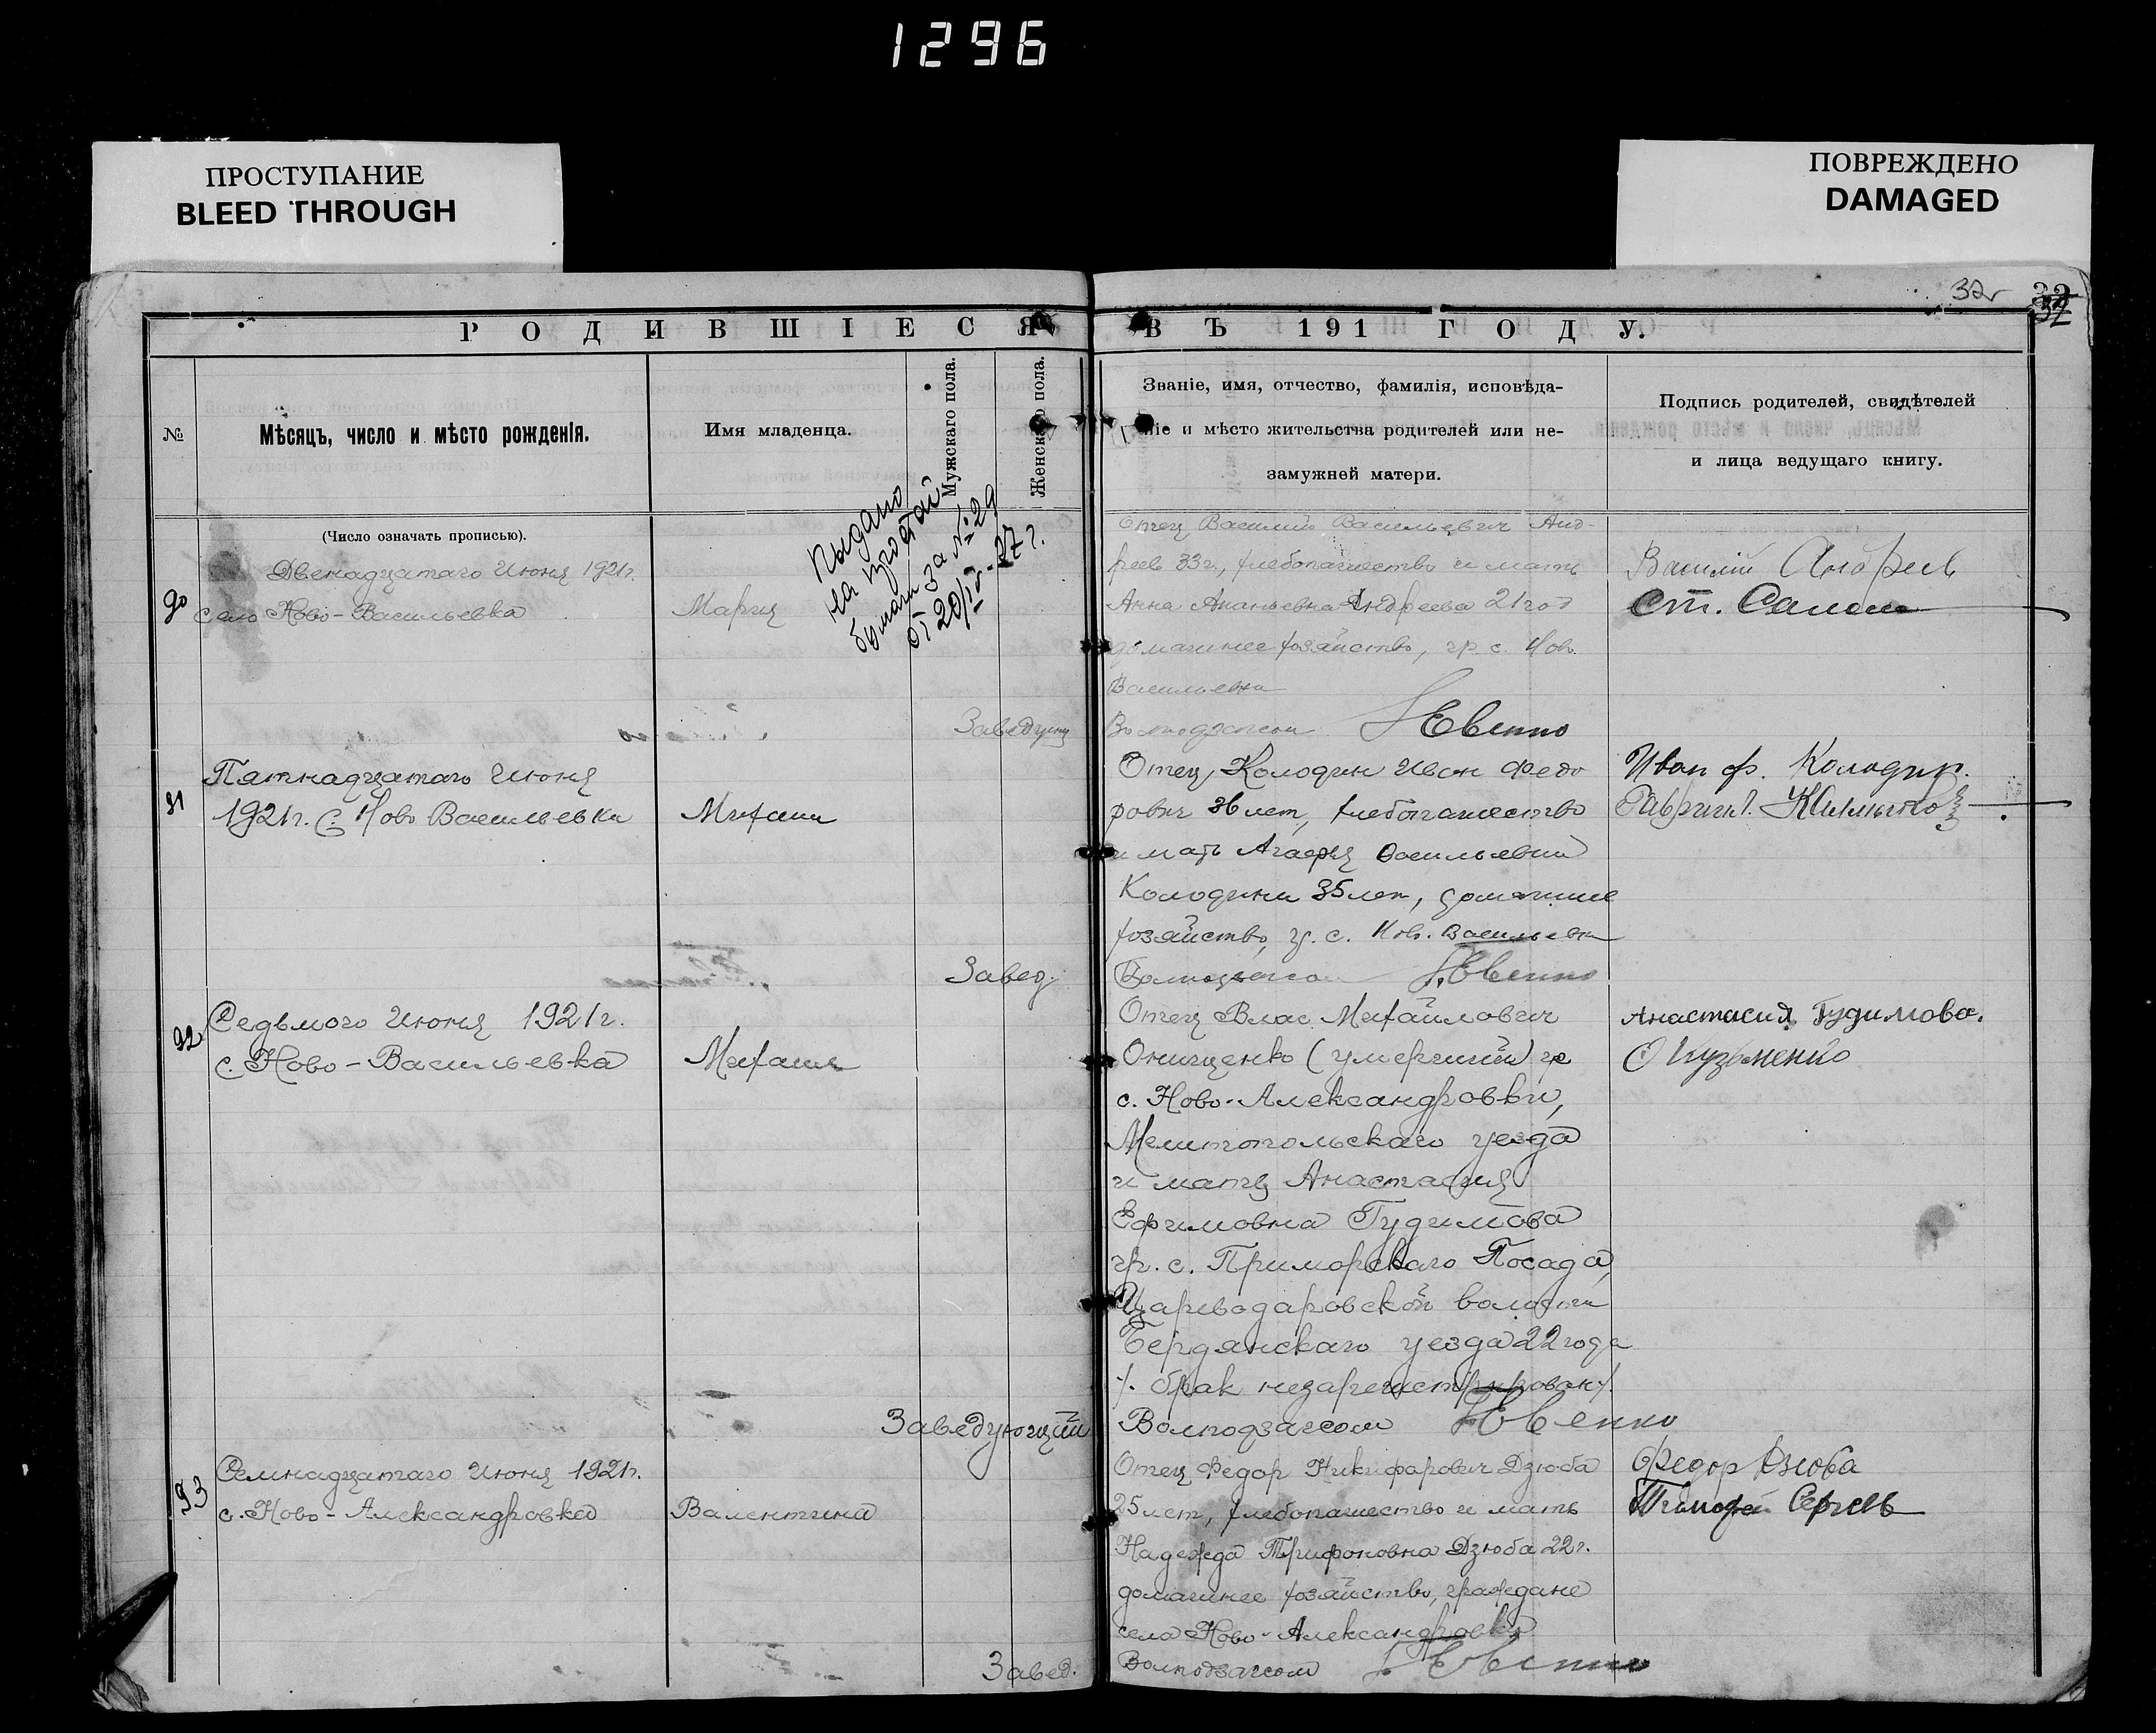 1296
ПРОСТУПАНИЕ
BLEED THROUGH
ПОВРЕЖДЕНО
DAMAGED
32
32
РОДИВШІЕСЯ ВЪ 191 ГОДУ.
№
Мѣсяцъ, число и мѣсто рожденія.
Имя младенца.
Мужскаго пола.
Женскаго пола.
Званіе, имя, отчество, фамилія, исповѣда-
ніе и мѣсто жительства родителей или не-
замужней матери.
Подпись родителей, свидѣтелей
и лица ведущаго книгу.
(Число означать прописью).
90
Двенадцатаго Июня 1921г.
село Ново-Васильевка
Мария
Выдано
на
за № 29
от 20/IV-27 г.
Отец Василий Васильевич Анд-
реев 33г., хлебопашество и мать
Анна Ананьевна Андреева 21 год
домашнее хозяйство, гр. с. Нов.
Васильевки
Василий Андреев
Ст.
Заведующ
Волподзагсом
91
Пятнадцатаго Июня
1921г. с. Ново Васильевка
Михаил
Отец, Колодин Иван Федо
рович 36 лет, хлебопашество
и мать Агафия Васильевна
Колодина 35 лет, домашнее
хозяйство, гр. с. Нов. Васильевки
Иван Ф. Колодин.
Завед.
Волподзагсом
92
Седьмого Июня 1921г.
с. Ново-Васильевка
Михаил
Отец Влас Михайлович
Онищенко (умерший) гр
с. Ново-Александровки,
Мелитопольскаго уезда
и мать Анастасия
Ефимовна Гудимова
гр. с. Приморскаго Посада,
Цареводаровской волости
Бердянскаго уезда 22 года
/. брак незарегистрирован /.
Анастасия Гудимова.
Кузьменко
Заведующий
Волподзагсом
93
Семнадцатаго Июня 1921г.
с. Ново-Александровка
Валентина
Отец Федор Никифарович Дзюба
25 лет, хлебопашество и мать
Надежда Трифоновна Дзюба 22 г.
домашнее хозяйство, граждане
села Ново-Александровка
Федор Дзюба
Тимофей Сергеев
Завед.
Волподзагсом